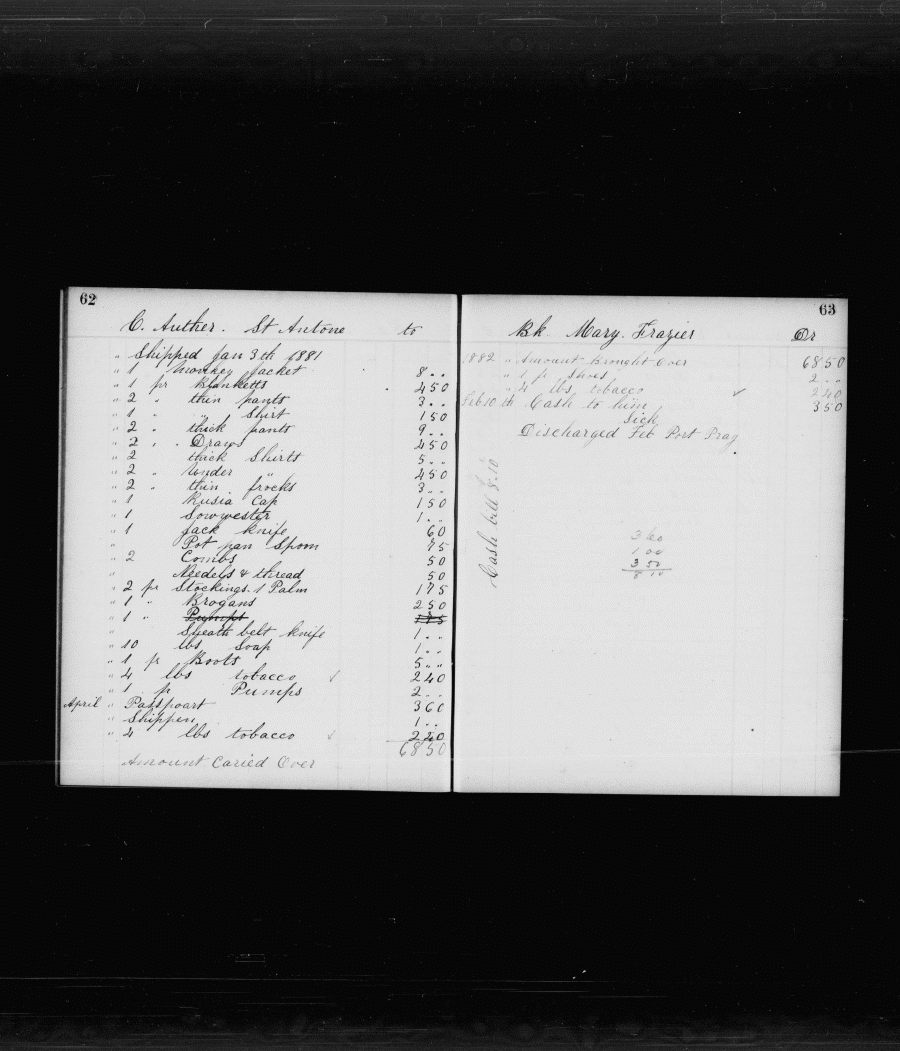 62
C. Auther. St Antone to
" Shipped Jan 3th 1881
" 1 Monkey Jacket 8 " "
" 1 pr Blanketts 4 50
" 2 " thin pants 3 " "
" 1 " " Shirt 1 50
" 2 " thick pants 9 " "
" 2 " " Draws 4 50
" 2 thick Shirts 5 " "
" 2 " Under " 4 50
" 2 " thin frocks 3 " "
" 1 Rusia Cap 1 50
" 1 Sowwester 1 " "
" 1 Jack knife 60
" Pot pan Spoon 75
" 2 Combs 50
" Needels & thread 50
" 2 pr Stockings. 1 Palm 1 75
" 1 " Brogans 2 50
" 1 " Pumps 1 75
" Sheath belt knife 1 " "
" 10 lbs Soap 1 " "
" 1 pr Boots 5 " "
" 4 lbs tobacco ✓ 2 40
" 1 pr Pumps 2 " "
April " Passpoart 3 60
" Shippen 1 " "
" 4 lbs tobacco ✓ 2 40
68 50
Amount Caried Over
63
Bk. Mary. Frazier Dr
1882 " Amount Brought Over 68 50
" 1 pr Shoes 2 " "
" 4 lbs tobacco ✓ 2 40
Feb 10th Cash to him 3 50
Sick
Discharged Feb Port Pray
Cash bill 8.10
3 60
1 00
3 50
8 10